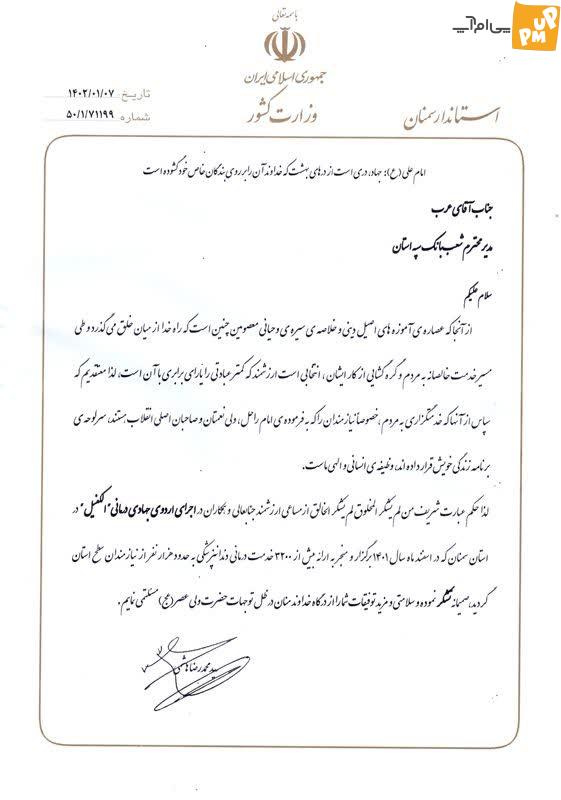 باسمه تعالی
پی‌ام‌آپ
PM UP
جمهوری اسلامی ایران
وزارت کشور
استاندار سمنان
تاریخ ۱۴۰۲/۰۱/۰۷
شماره ۵۰/۱/۷۱۱۹۹
امام علی (ع): جهاد، دری است از درهای بهشت که خداوند آن را بر روی بندگان خاص خود گشوده است
جناب آقای عرب
مدیر محترم شعب بانک سپه استان
سلام علیکم
از آنجا که عصاره‌ی آموزه های اصیل دینی و خلاصه‌ی سیره‌ی وحیانی معصومین چنین است که راه خدا از میان خلق می گذرد و طی
مسیر خدمت خالصانه به مردم و گره گشایی از کار ایشان، انتخابی است ارزشمند که کمتر عبادتی را یارای برابری با آن است، لذا معتقدیم که
سپاس از آنها که خدمتگزاری به مردم، خصوصاً نیازمندان را که به فرموده‌ی امام راحل، ولی نعمتان و صاحبان اصلی انقلاب هستند، سرلوحه‌ی
برنامه زندگی خویش قرار داده اند، وظیفه‌ی انسانی و الهی ماست.
لذا حکم عبارت شریف من لم یشکر المخلوق لم یشکر الخالق از مساعی ارزشمند جنابعالی و همکاران در اجرای اردوی جهادی درمانی "الکفیل" در
استان سمنان که در اسفند ماه سال ۱۴۰۱ برگزار و منجر به ارائه بیش از ۳۲۰۰ خدمت درمانی دندانپزشکی به حدود هزار نفر از نیازمندان سطح استان
گردید، صمیمانه تشکر نموده و سلامتی و مزید توفیقات شما را از درگاه خداوند منان در ظل توجهات حضرت ولی عصر (عج) مسئلت می نمایم.
سید محمدرضا هاشمی